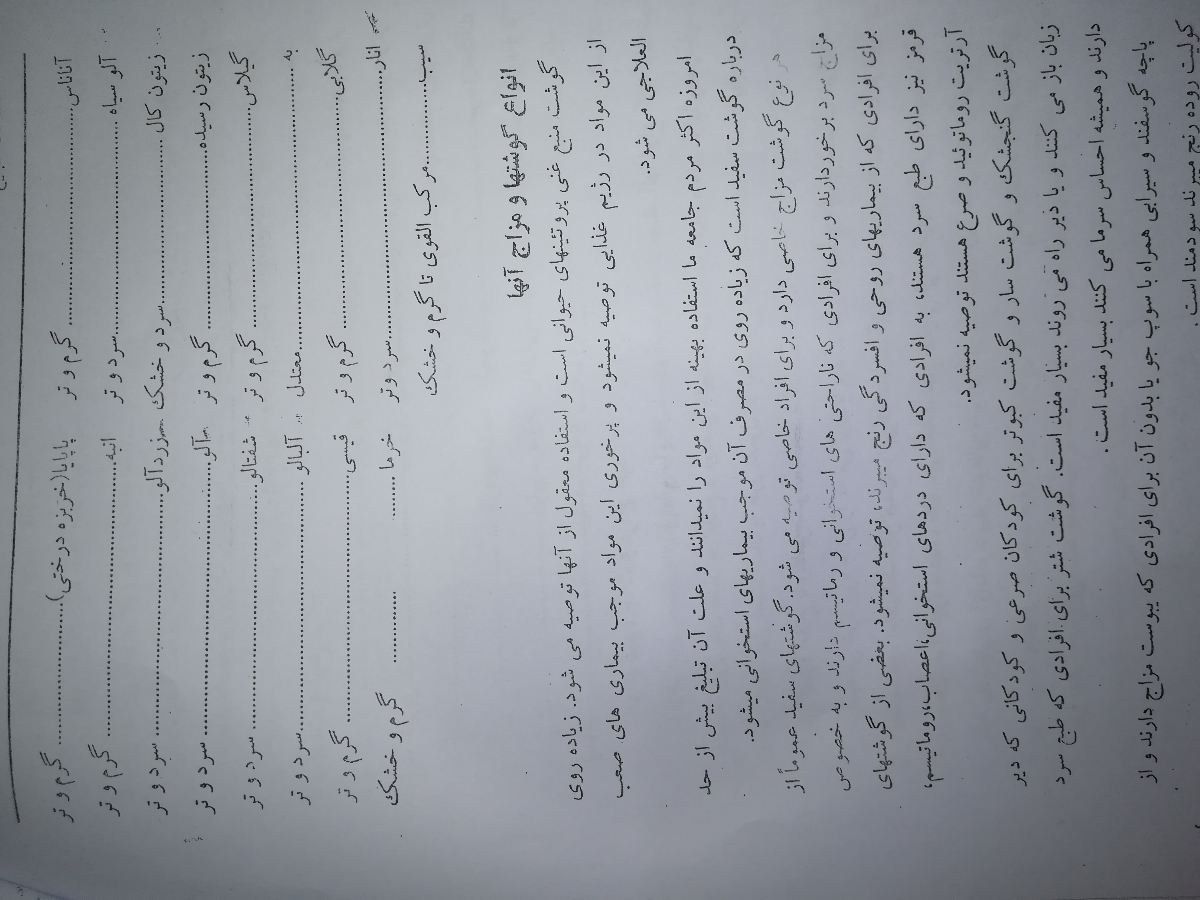 آناناس............گرم و تر پاپایا(خربزه درختی)............گرم و تر
آلو سیاه............سرد و تر انبه............گرم و تر
زیتون کال............سرد و خشک زردآلو............سرد و تر
زیتون رسیده............گرم و تر آلو............سرد و تر
گیلاس............گرم و تر شفتالو............سرد و تر
به............معتدل آلبالو............سرد و تر
گلابی............گرم و تر قیسی............گرم و تر
انار............سرد وتر خرما............گرم و خشک
سیب............مرکب القوی تا گرم و خشک
انواع گوشتها و مزاج آنها
گوشت منبع غنی پروتئینهای حیوانی است و استفاده معقول از آنها توصیه می شود. زیاده روی
از این مواد در رژیم غذایی توصیه نمیشود و پرخوری این مواد موجب بیماری های صعب
العلاجی می شود.
امروزه اکثر مردم جامعه ما استفاده بهینه از این مواد را نمیدانند و علت آن تبلیغ بیش از حد
درباره گوشت سفید است که زیاده روی در مصرف آن موجب بیماریهای استخوانی میشود.
هر نوع گوشت مزاج خاصی دارد و برای افراد خاصی توصیه می شود. گوشتهای سفید عموماً از
مزاج سرد برخوردارند و برای افرادی که ناراحتی های استخوانی و رماتیسم دارند و به خصوص
برای افرادی که از بیماریهای روحی و افسردگی رنج میبرند، توصیه نمیشود. بعضی از گوشتهای
قرمز نیز دارای طبع سرد هستند، به افرادی که دارای دردهای استخوانی،اعصاب،روماتیسم،
آرتریت روماتوئید و صرع هستند توصیه نمیشود.
گوشت گنجشک و گوشت سار و گوشت کبوتر برای کودکان صرعی و کودکانی که دیر
زبان باز می کنند و یا دیر راه می روند بسیار مفید است. گوشت شتر برای افرادی که طبع سرد
دارند و همیشه احساس سرما می کنند بسیار مفید است.
پاچه گوسفند و سیرابی همراه با سوپ جو یا بدون آن برای افرادی که یبوست مزاج دارند و از
کولت روده رنج میبرند سودمند است.